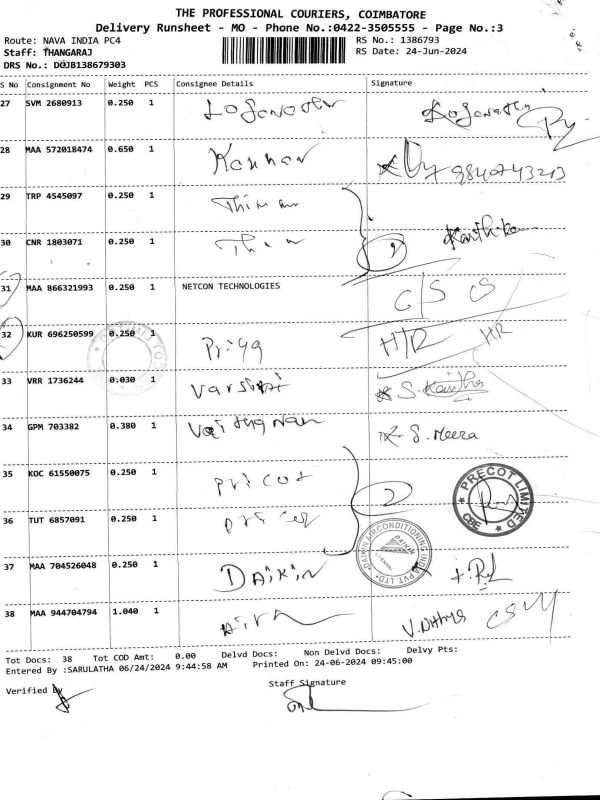 THE PROFESSIONAL COURIERS, COIMBATORE
Delivery Runsheet - MO - Phone No.:0422-3505555 - Page No.:3
Route: NAVA INDIA PC4
RS No.: 1386793
Staff: THANGARAJ
RS Date: 24-Jun-2024
DRS No.: DOJB138679303
S No Consignment No Weight PCS Consignee Details Signature
27 SVM 2680913 0.250 1 Loganathan Loganathan
28 MAA 572018474 0.650 1 Kannan 9840743213
29 TRP 4545097 0.250 1
30 CNR 1803071 0.250 1 Karthika
31 MAA 866321993 0.250 1 NETCON TECHNOLOGIES C/S CS
32 KUR 696250599 0.250 1 Priya H/R HR
33 VRR 1736244 0.030 1 Varshini S. Kavitha
34 GPM 703382 0.380 1 S. Meera
35 KOC 61550075 0.250 1 Pricot 2
PRECOT LIMITED
CBE
36 TUT 6857091 0.250 1 Pricot
DAIKIN AIRCONDITIONING INDIA PVT. LTD.
37 MAA 704526048 0.250 1 DAIKIN
38 MAA 944704794 1.040 1
Tot Docs: 38 Tot COD Amt: 0.00 Delvd Docs: Non Delvd Docs: Delvy Pts:
Entered By :SARULATHA 06/24/2024 9:44:58 AM Printed On: 24-06-2024 09:45:00
Staff Signature
Verified By